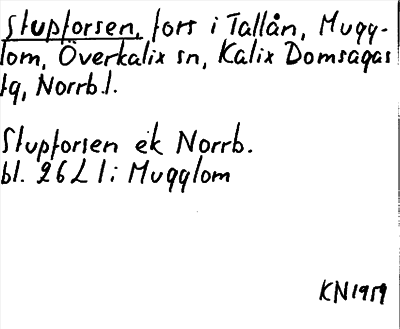 Stupforsen, fors i Tallån, Mugg-
lom, Överkalix sn, Kalix Domsagas
tg, Norrb.l.
Stupforsen ek Norrb.
bl. 26 L l i Mugglom
KN 1959